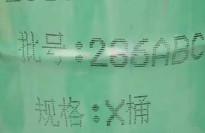 批号:286ABC
规格:X桶